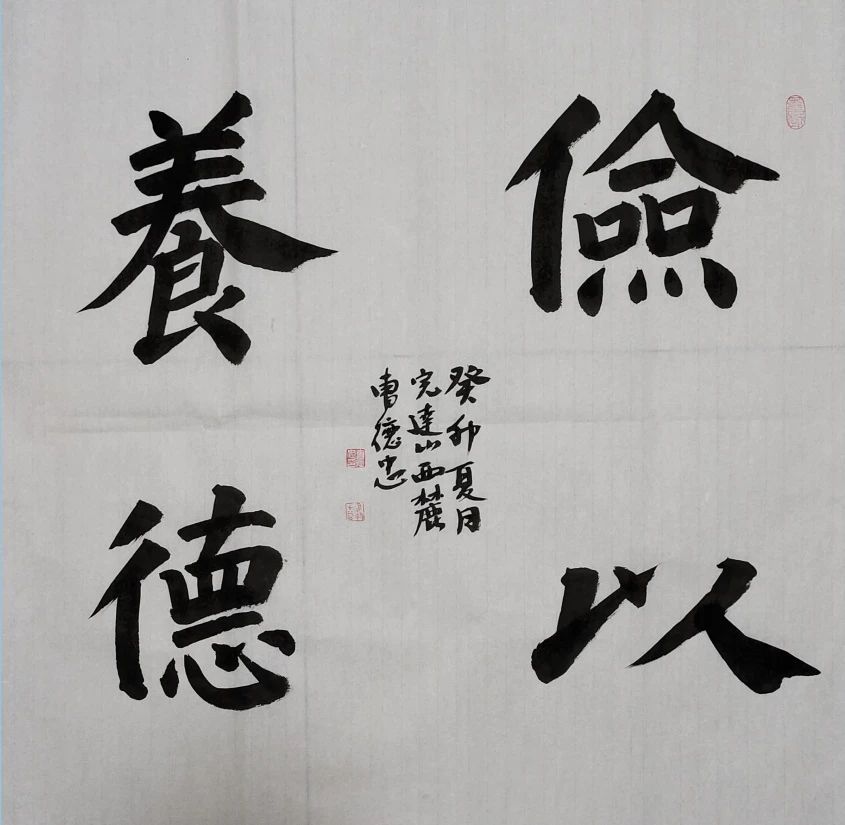 儉以
養德
癸卯夏月
完達山西麓
曹德忠